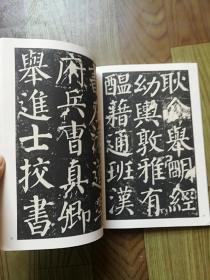 耿介舉朙經
幼輿敦雅有
醞藉通班漢
府兵曹真卿
舉進士挍書